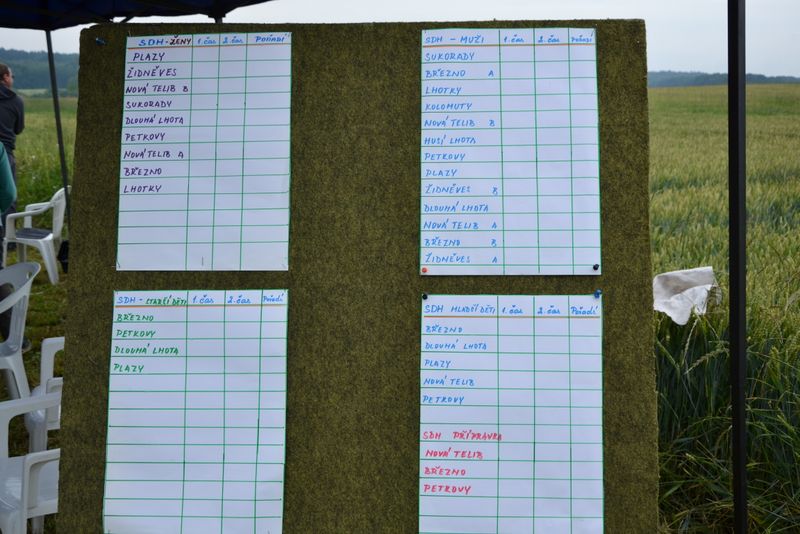 SDH - ŽENY 1. čas 2. čas Pořadí
PLAZY
ŽIDNĚVES
NOVÁ TELIB B
SUKORADY
DLOUHÁ LHOTA
PETKOVY
NOVÁ TELIB A
BŘEZNO
LHOTKY
SDH - MUŽI 1. čas 2. čas Pořadí
SUKORADY
BŘEZNO A
LHOTKY
KOLOMUTY
NOVÁ TELIB B
HUSÍ LHOTA
PETKOVY
PLAZY
ŽIDNĚVES B
DLOUHÁ LHOTA
NOVÁ TELIB A
BŘEZNO B
ŽIDNĚVES A
SDH - STARŠÍ DĚTI 1. čas 2. čas Pořadí
BŘEZNO
PETKOVY
DLOUHÁ LHOTA
PLAZY
SDH MLADŠÍ DĚTI 1. čas 2. čas Pořadí
BŘEZNO
DLOUHÁ LHOTA
PLAZY
NOVÁ TELIB
PETKOVY
SDH PŘÍPRAVKA
NOVÁ TELIB
BŘEZNO
PETKOVY